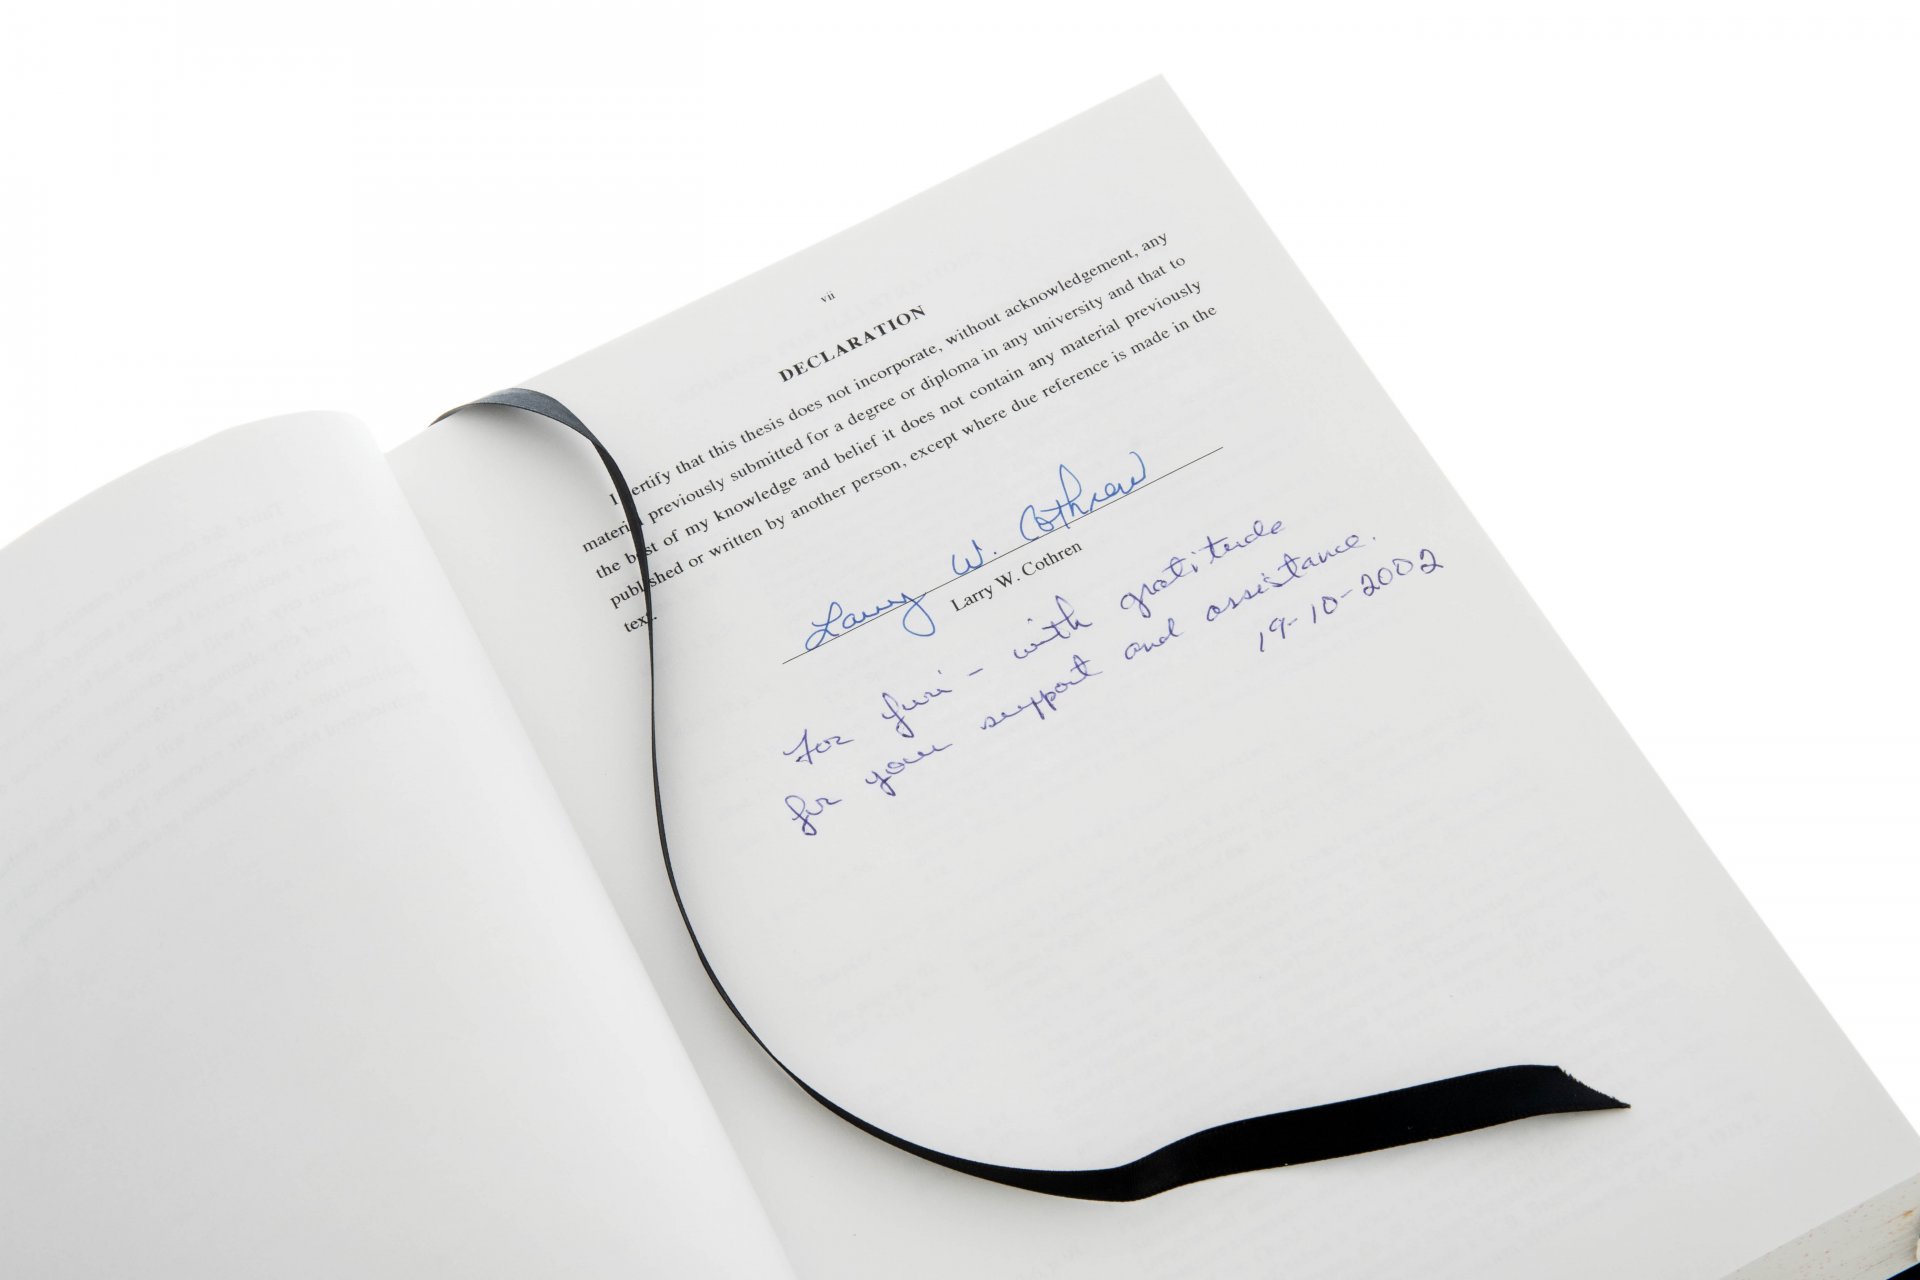 vii
DECLARATION
I ertify that this thesis does not incorporate, without acknowledgement, any
material previously submitted for a degree or diploma in any university and that to
the best of my knowledge and belief it does not contain any material previously
published or written by another person, except where due reference is made in the
text.
Larry W. Cothren
Larry W. Cothren
For Juri - with gratitude
for your support and assistance.
19-10-2002